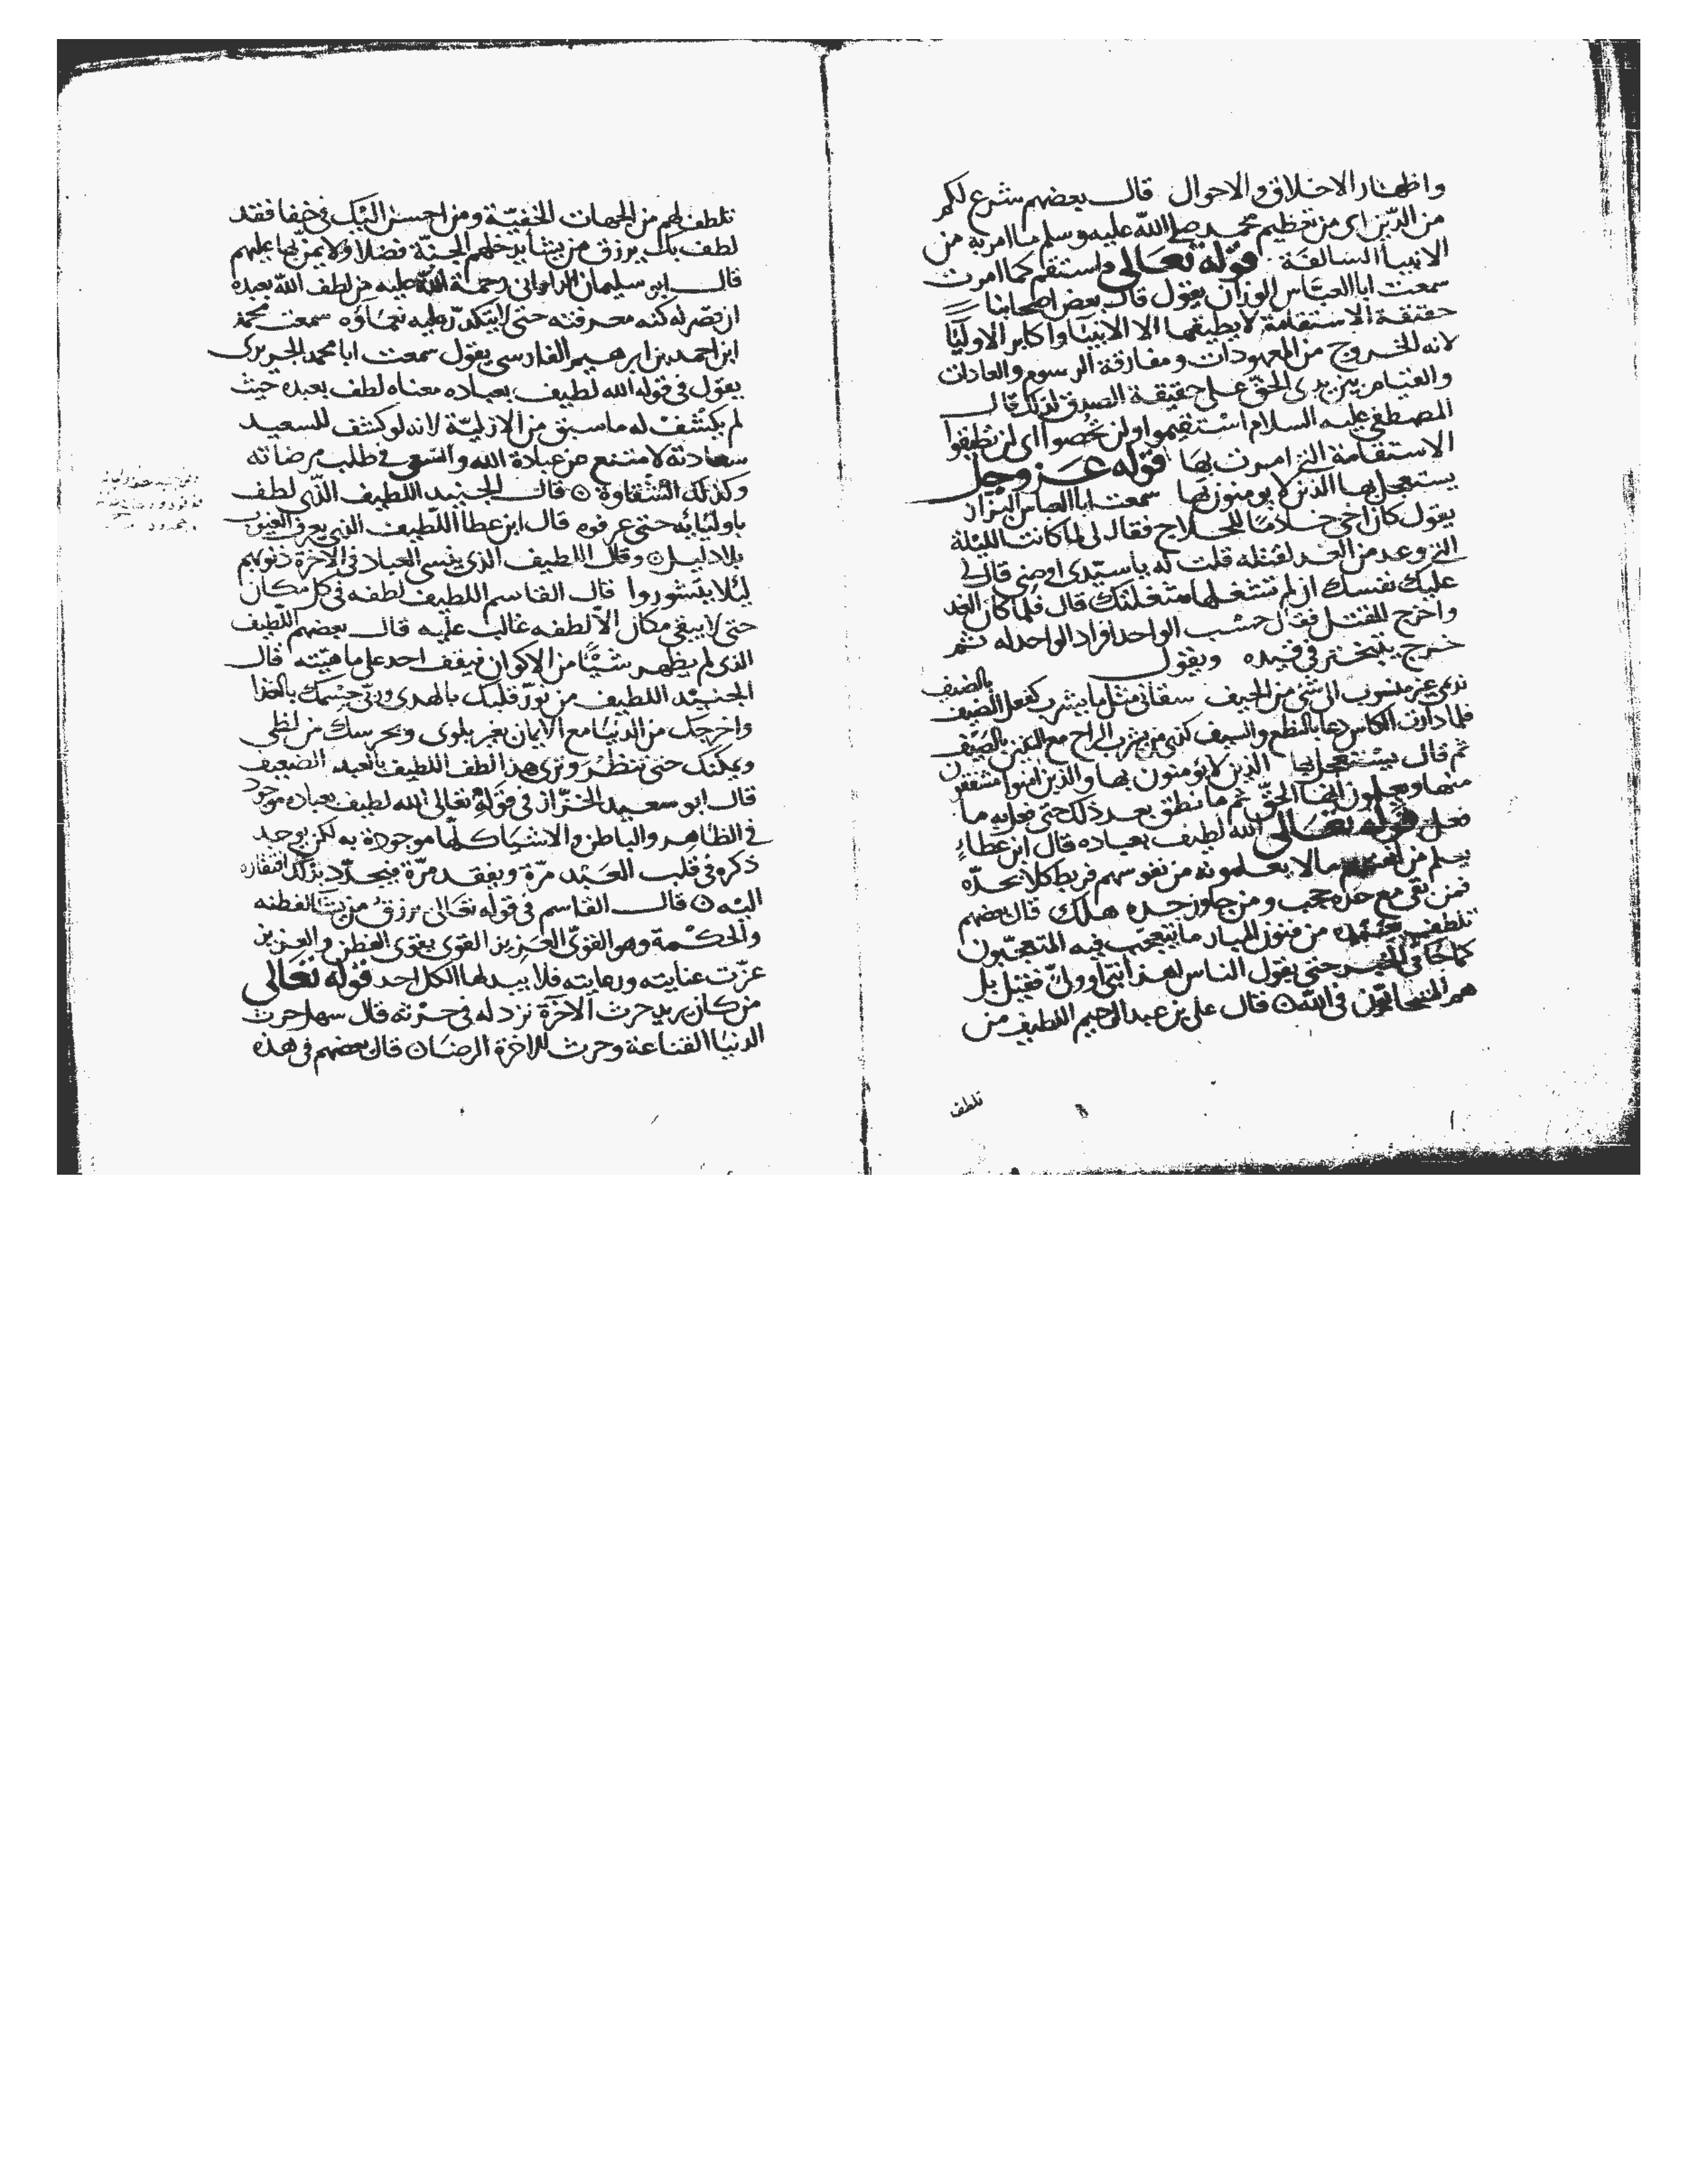 واظهار الاخلاق والاحوال قال بعضهم شرع لكم
من الدّين اى من تعظيم محمد صلى الله عليه وسلم ما امر به من
الانبيأ السالفة قوله تعالى واستقم كما امرت
سمعت ابا العبّاس الوزان يقول قال بعض اصحابنا
حقيقة الاستقامة لا يطيقها الا الانبيا واكابر الاوليّا
لانه الخروج من المعهودات ومفارقة الرسوم والعادات
والقيام بين يدى الحقّ على حقيقة الصدق لذلك قال
المصطفي عليه السلام استقيموا ولن تحصوا اى لن تطيقوا
الاستقامة التى امرت بها قوله عز وجل
يستعجل بها الذين لا يومنون بها سمعت ابا العباس البزاز
يقول كان اخى خادمًا للحلاج فقال لى لما كانت الليلة
التى وعد من الغد لقتله قلت له يا سيّدى اوصنى قال لى
عليك نفسك ان لم تشغلها شغلتك قال فلما كان الغد
واخرج للقتل فقال حسب الواحد افراد الواحد له ثم
خرج يتبختر فى قيده ويقول
نديمى غير منسوب الى شئ من الحيف سقانى مثل ما يشرب كفعل الضيف بالضيف
فلما دارت الكاس دعا بالنطع والسيف كذى من يشرب الراح مع التنين بالصّيف
ثم قال يستعجل بها الذين لا يؤمنون بها والذين امنوا مشفقون
منها ويعلمون انها الحقّ ثم ما نطق بعد ذلك حتى فعل به ما
فعل قوله تعالى الله لطيف بعباده قال ابن عطاءٍ
يعلم من انفسهم ما لا يعلمونه من نفوسهم فربط كلا بحدّه
فمن بقى مع حدّه حجب ومن جاوز حده هلك قال بعضهم
تلطف بعبده من فنون المبار ما يتعجّب فيه المتعجّبون
كما جا فى الخبر حتى يقول الناس لهذا نبى او ولىّ فقيل بل
هم المتحابّون فى الله ۞ قال على بن عبد الرحيم اللطيف من
تلطف
تلطف لهم من الجهات الخفيّة ومن احسن اليك فى خيفا فقد
لطف بك يرزق من يشأ يدخلهم الجنّة فضلا ولا يمنّ بها عليهم
قال ابو سليمان الدارانى رحمة الله عليه من لطف الله بعبده
ان قصّر له كنه معرفته حتى لا يتكدّر عليه نعماؤه سمعت محمد
ابن احمد بن ابرهيم الفارسى يقول سمعت ابا محمد الجريرى
يقول فى قوله الله لطيف بعباده معناه لطف بعبده حيث
لم يكشف له ما سبق من الازليّة لانه لو كشف للسعيد
سعادته لامتنع عن عبادة الله والسعى فى طلب مرضاته
وكذلك الشقاوة ۞ قال الجنيد اللطيف الذى لطف
باوليائه حتى عرفوه قال ابن عطا اللّطيف الذى يعرف العيوب
بلا دليل ۞ وقال اللطيف الذى ينسى العباد فى الآخرة ذنوبهم
ليلا يتشوروا قال القاسم اللطيف لطفه فى كل مكان
حتى لا يبقى مكان الاّ لطفه غالب عليه قال بعضهم اللّطيف
الذى لم يظهر شيئًا من الاكوان فيقف احد على ماهيّته قال
الجنيد اللطيف من نوّر قلبك بالهدى وربّى جسمك بالغذا
واخرجك من الدنيا مع الايمان بغير بلوى ويحرسك من لظى
ويمكنك حتى تنظر وترى هذا الطف اللطيف بالعبد الضعيف
قال ابو سعيد الخرّاز فى قوله تعالى الله لطيف بعباده موجود
فى الظاهر والباطن والاشياء كلّها موجودة به لكن يوجد
ذكره فى قلب العبد مرّة ويفقد مرّة ليتجدّد بذلك افتقاره
اليه ۞ قال القاسم فى قوله تعالى يرزق من يشا الفطنه
والحكمة وهو القوىّ العزيز القوى يقوى الفطن والعزيز
عزّت عنايته ورعايته فلا يبدلها الكل احد قوله تعالى
من كان يريد حرث الآخرة نزد له فى حرثه قال سهل حرث
الدنيا القناعة وحرث الاخرة الرضا ۞ قال بعضهم فى هذه